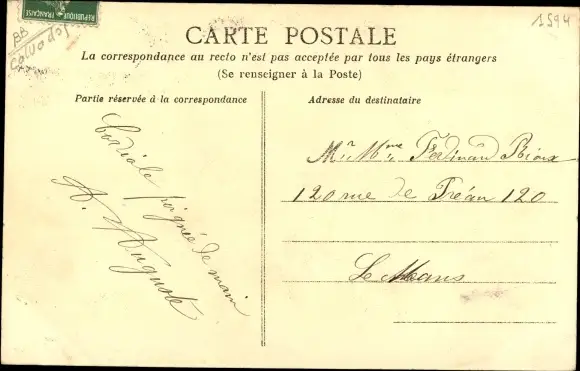 REPUBLIQUE FRANÇAISE
1594
BB
Calvados
CARTE POSTALE
La correspondance au recto n'est pas acceptée par tous les pays étrangers
(Se renseigner à la Poste)
Partie réservée à la correspondance
Cordiale
poignée de main
A. Auguste
Adresse du destinataire
Mr. Mme Ferdinand
120 rue de 120
Le Mans